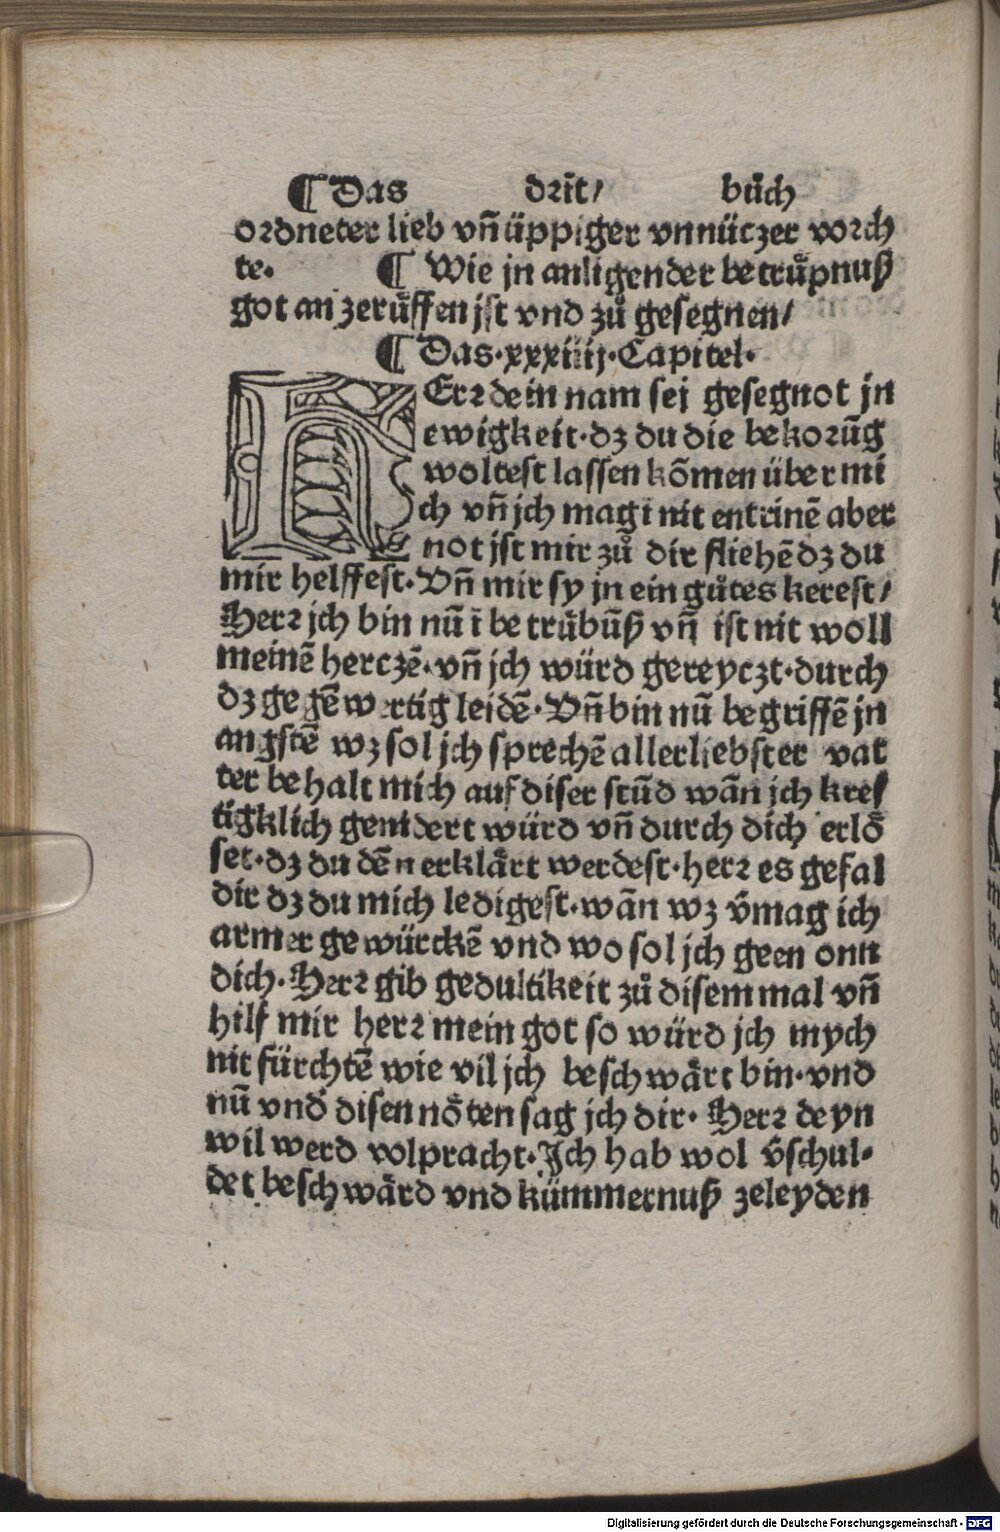 ¶ Das drit/ bůch
ordneter lieb vñ üppiger vnnüczer vorch
te. ¶ Wie jn anligender betrůpnuß
got an zerůffen jst vnd zů gesegnen/
¶ Das·xxxiiij·Capitel·
HErꝛ dein nam sei gesegnot jn
ewigkeit·dz du die bekorūg
woltest lassen kōmen über mi
ch vñ jch mag i nit entrinē aber
not jst mir zů dir fliehē dz du
mir helffest·Vñ mir sy jn ein gůtes kerest/
Herꝛ jch bin nū ī betrůbūß vñ ist nit woll
meinē herczē·vñ jch würd gereyczt·durch
dz gegēwertig leidē·Vñ bin nū begriffē jn
angstē wz sol jch sprechē allerliebster vat
ter behalt mich auf diser stūd wān jch kref
tigklich genidert würd vñ durch dich erlö
set·dz du dēn erklärt werdest·herꝛ es gefal
dir dz du mich ledigest·wān wz v̄mag ich
armer gewürckē vnd wo sol jch geen onn
dich·Herꝛ gib gedultikeit zů disem mal vñ
hilf mir herꝛ mein got so würd jch mych
nit fürchtē wie vil jch beschwärt bin·vnd
nū vnd disen nöten sag jch dir· Herꝛ deyn
wil werd volpracht·Ich hab wol v̄schul-
det beschwärd vnd kümmernuß zeleyden
Digitalisierung gefördert durch die Deutsche Forschungsgemeinschaft - DFG